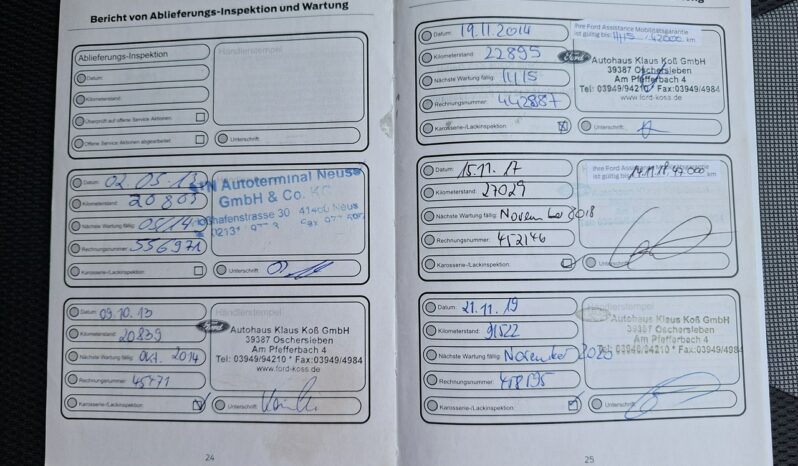 Bericht von Ablieferungs-Inspektion und Wartung
Ablieferungs-Inspektion
Händlerstempel
Datum:
Kilometerstand:
Überprüft auf offene Service Aktionen
Offene Service Aktionen abgearbeitet
Unterschrift:
Datum: 02.05.13
Kilometerstand: 20803
Nächste Wartung fällig: 05/14
Rechnungsnummer: 556971
Karosserie-/Lackinspektion:
N Autoterminal Neuss
GmbH & Co. KG
hafenstrasse 30 41460 Neus
02131
Unterschrift:
Datum: 09.10.13
Kilometerstand: 20839
Nächste Wartung fällig: Okt. 2014
Rechnungsnummer: 45471
Karosserie-/Lackinspektion:
Händlerstempel
Ford
Autohaus Klaus Koß GmbH
39387 Oschersleben
Am Pfefferbach 4
Tel: 03949/94210 * Fax:03949/4984
www.ford-koss.de
Unterschrift:
24
Datum: 19.11.2014
Kilometerstand: 22895
Nächste Wartung fällig: 11/15
Rechnungsnummer: 442887
Karosserie-/Lackinspektion:
Ihre Ford Assistance Mobilitätsgarantie
ist gültig bis: 11/15 42000 km
Ford
Autohaus Klaus Koß GmbH
39387 Oschersleben
Am Pfefferbach 4
Tel: 03949/94210 * Fax:03949/4984
www.ford-koss.de
Unterschrift:
Datum: 15.11.17
Kilometerstand: 27029
Nächste Wartung fällig: November 2018
Rechnungsnummer: 452146
Karosserie-/Lackinspektion:
Ihre Ford Assistance Mobilitätsgarantie
ist gültig bis 14.11.18 47000 km
Unterschrift:
Datum: 21.11.19
Kilometerstand: 91522
Nächste Wartung fällig: November 2020
Rechnungsnummer: 458195
Karosserie-/Lackinspektion:
Händlerstempel
Autohaus Klaus Koß GmbH
39387 Oschersleben
Am Pfefferbach 4
Tel: 03949/94210 * Fax:03949/4984
www.ford-koss.de
Unterschrift:
25